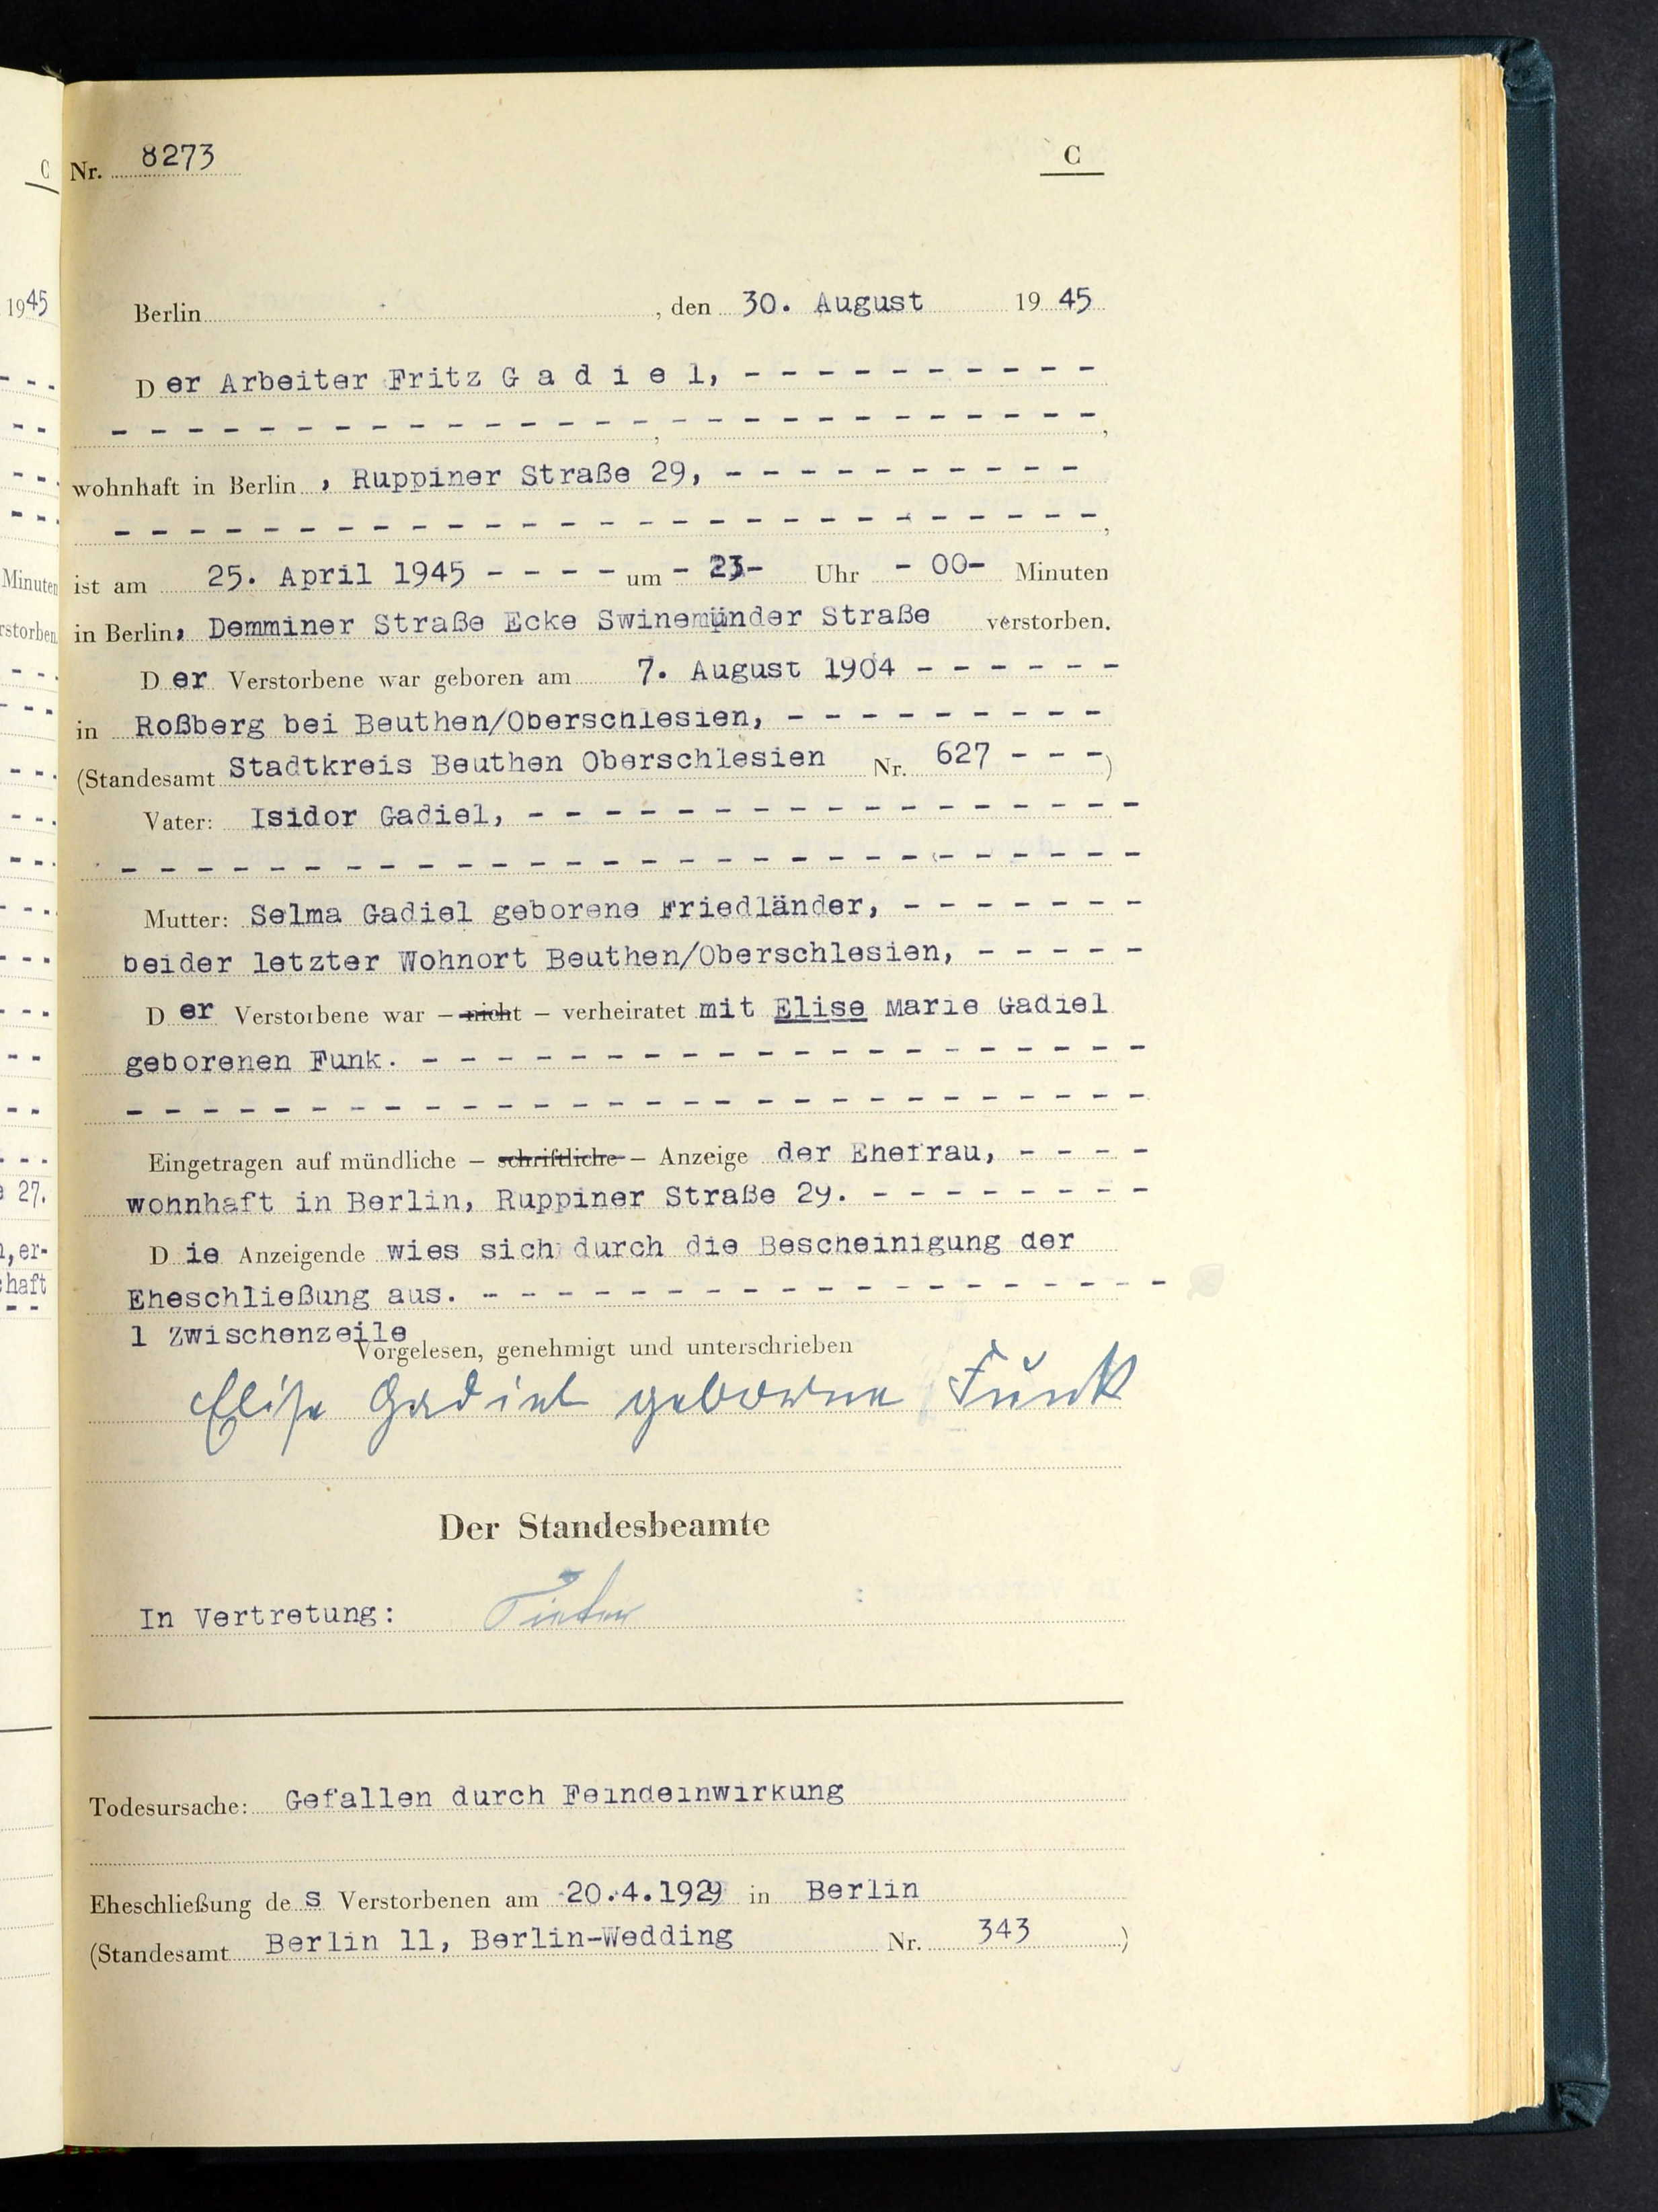 C
Nr. 8273
C
1945
Berlin, den 30. August 1945
Der Arbeiter Fritz G a d i e l, - - - - - - - - - -
- - - - - - - - - - - - - - - - - - - - - - - - - -,
wohnhaft in Berlin, Ruppiner Straße 29, - - - - - - - - - -
- - - - - - - - - - - - - - - - - - - - - - - - - -,
Minuten
ist am 25. April 1945 - - - - um - 23- Uhr - 00- Minuten
rstorben.
in Berlin, Demminer Straße Ecke Swinemünder Straße verstorben.
Der Verstorbene war geboren am 7. August 1904 - - - - - -
in Roßberg bei Beuthen/Oberschlesien, - - - - - - - - -
(Standesamt Stadtkreis Beuthen Oberschlesien Nr. 627 - - -)
Vater: Isidor Gadiel, - - - - - - - - - - - - - - - - -
- - - - - - - - - - - - - - - - - - - - - - - - - - -
Mutter: Selma Gadiel geborene Friedländer, - - - - - - -
beider letzter Wohnort Beuthen/Oberschlesien, - - - - -
Der Verstorbene war – nicht – verheiratet mit Elise Marie Gadiel
geborenen Funk. - - - - - - - - - - - - - - - - - - -
- - - - - - - - - - - - - - - - - - - - - - - - - - -
Eingetragen auf mündliche – schriftliche – Anzeige der Ehefrau, - - - -
27.
wohnhaft in Berlin, Ruppiner Straße 29. - - - - - - - -
,er-
Die Anzeigende wies sich durch die Bescheinigung der
haft
Eheschließung aus. - - - - - - - - - - - - - - - - - -
1 Zwischenzeile
Vorgelesen, genehmigt und unterschrieben
Elise Gadiel geborene Funk
Der Standesbeamte
In Vertretung:
Todesursache: Gefallen durch Feindeinwirkung
Eheschließung des Verstorbenen am 20.4.1929 in Berlin
(Standesamt Berlin 11, Berlin-Wedding Nr. 343)